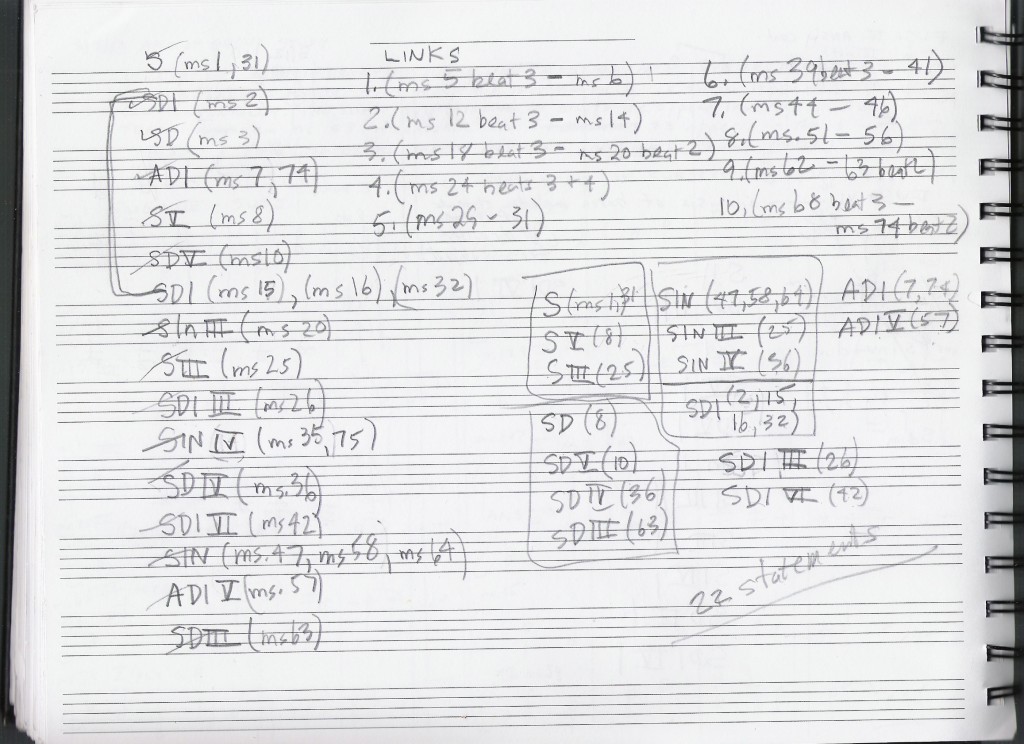 S (ms1, 31)
SDI (ms 2)
SD (ms 3)
ADI (ms 7, 74)
S V (ms 8)
SD V (ms 10)
SDI (ms 15), (ms 16), (ms 32)
SIn III (ms 20)
S III (ms 25)
SDI III (ms 26)
SIN IV (ms 35, 75)
SD IV (ms. 36)
SDI VI (ms 42)
SIN (ms. 47, ms 58, ms 64)
ADI V (ms. 57)
SD III (ms 63)
LINKS
1. (ms 5 beat 3 - ms 6)
2. (ms 12 beat 3 - ms 14)
3. (ms 18 beat 3 - ms 20 beat 2)
4. (ms 24 beats 3 + 4)
5. (ms 29 - 31)
6. (ms 39 beat 3 - 41)
7. (ms 44 - 46)
8. (ms. 51 - 56)
9. (ms 62 - 63 beat 2)
10. (ms 68 beat 3 -
ms 74 beat 2)
S (ms 1, 31
S V (8)
S III (25)
SIN (47, 58, 64)
SIN III (25)
SIN IV (36)
ADI (7, 74)
ADI V (57)
SDI (2, 15,
16, 32)
SD (8)
SD V (10)
SD IV (36)
SD III (63)
SDI III (26)
SDI VI (42)
22 statements